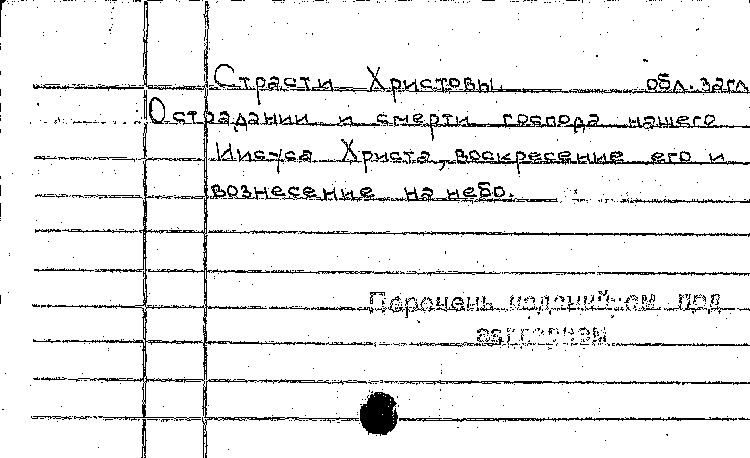 Страсти Христовы. обл. загл
О страдании и смерти господа нашего
Иисуса Христа, воскресение его и
вознесение на небо.
Перечень изданий см. под
заглавием